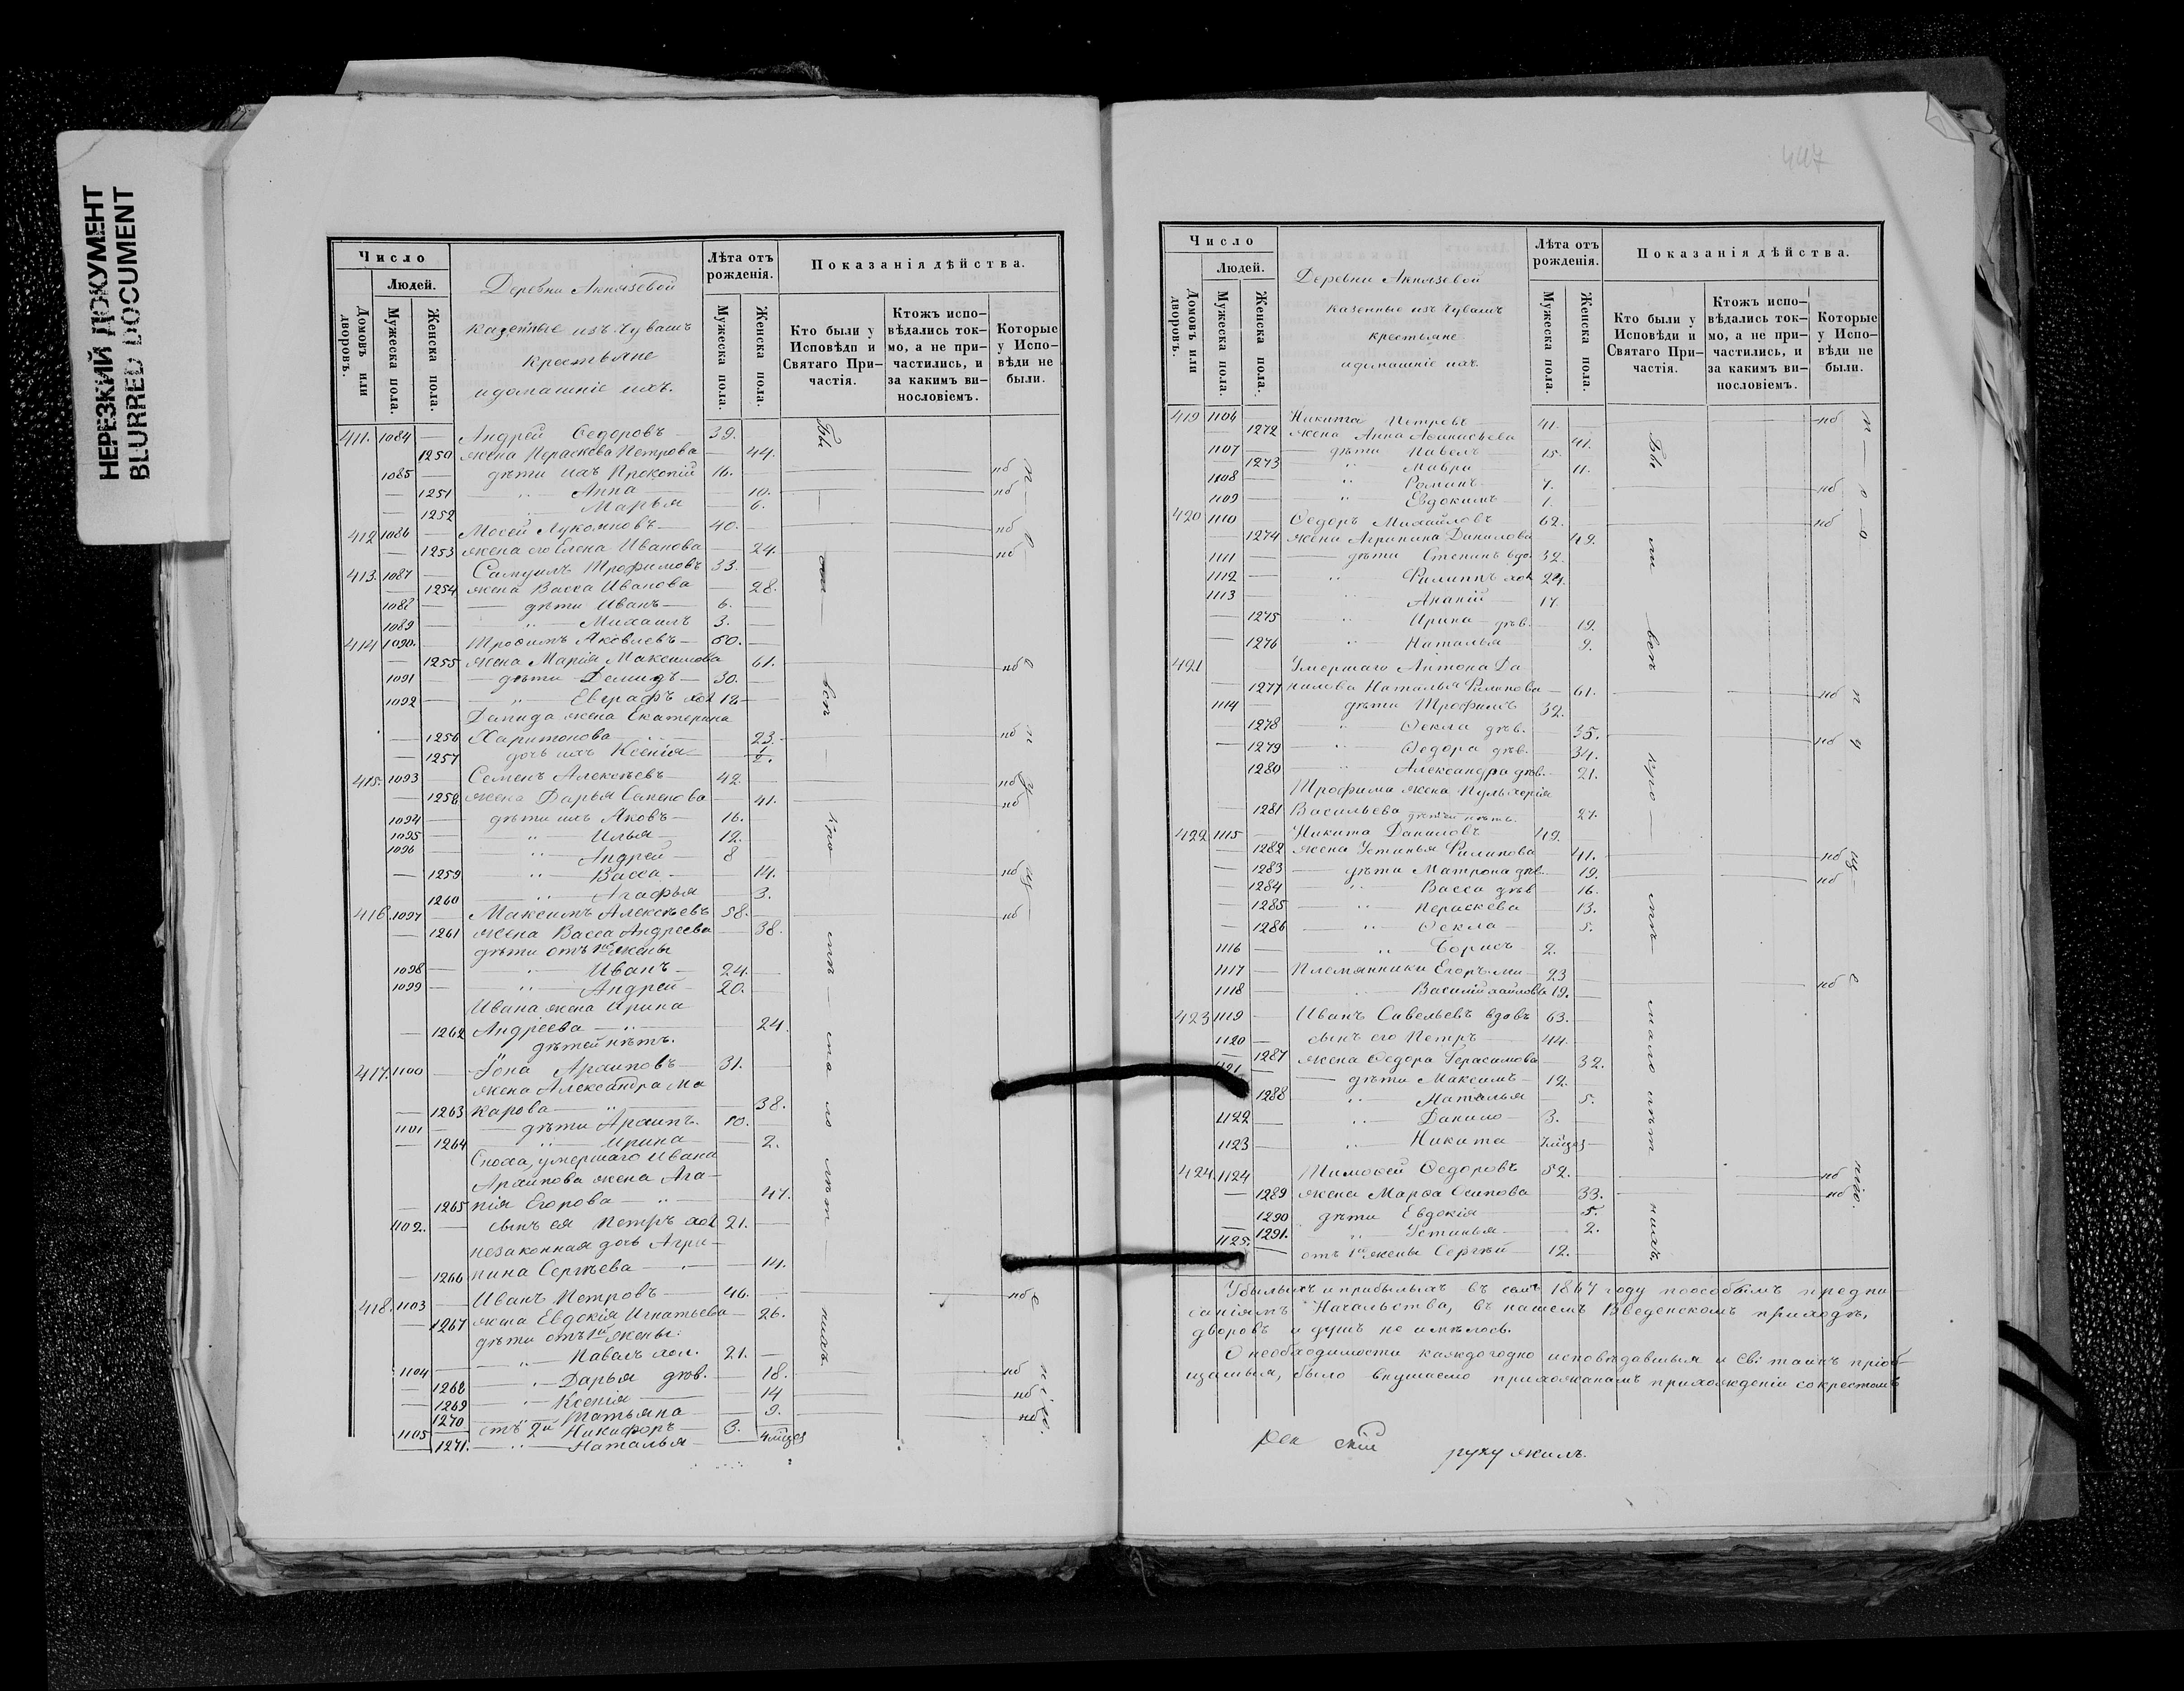 НЕРЕЗКИЙ ДОКУМЕНТ
BLURRED DOCUMENT
Число
Людей.
Домовъ или дворовъ.
Мужеска пола.
Женска пола.
Деревни Акнязевой
казенные изъ Чувашъ
крестьяне
и домашніе ихъ.
Лѣта отъ рожденія.
Мужеска пола.
Женска пола.
Показанія дѣйства.
Кто были у Исповѣди и Святаго Причастія.
Ктожъ исповѣдались токмо, а не причастились, и за какимъ винословіемъ.
Которые у Исповѣди не были.
411. 1084 — Андрей Ѳедоровъ — 39.
1250 жена Параскева Петрова 44.
1085 — дѣти ихъ Прокопій 16. нб
— 1251 „ Анна 10. нб
1252 „ Марья 6.
412 1086 — Мосей Лукояновъ 40. нб
— 1253 жена его Елена Иванова 24. нб
413. 1087 — Самуилъ Трофимовъ 33.
— 1254 жена Васса Иванова 28.
1088 — дѣти Иванъ 6.
1089 — „ Михаилъ 3.
414 1090. Трофимъ Яковлевъ 60.
— 1255 жена Марія Максимова 61. нб
1091 — дѣти Демидъ 30.
1092 — „ Евграфъ хол 18
Демида жена Екатерина
— 1256 Харитонова 23. нб
— 1257 дочь ихъ Ксенія 1/2.
415. 1093 — Семенъ Алексѣевъ 42. нб
— 1258 жена Дарья Семенова 41. нб
1094 — дѣти ихъ Яковъ 16.
1095 „ Илья 12.
1096 „ Андрей 8
— 1259 „ Васса 14. нб
1260 „ Агафья 3.
416. 1097 — Максимъ Алексѣевъ 58. нб
— 1261 жена Васса Андреева 38.
дѣти отъ 1й жены
1098 — „ Иванъ 24.
1099 — „ Андрей 20.
Ивана жена Ирина
— 1262 Андреева 24.
дѣтей нѣтъ.
417. 1100 — Іона Архиповъ 31.
жена Александра Ма
— 1263 карова 38.
1101 — дѣти Архипъ. 10.
— 1264 „ Ирина 2.
Сноха, умершаго Ивана
Архипова жена Ага-
— 1265 пія Егорова 47.
1102. — сынъ ея Петръ хол 21.
незаконная дочь Агри-
— 1266 пина Сергѣева 14.
418. 1103 — Иванъ Петровъ 46. нб
— 1267 жена Евдокія Игнатьева 26.
дѣти отъ 1й жены:
1104 — „ Павелъ хол. 21.
— 1268 „ Дарья дѣв. 18. нб
— 1269 „ Ксенія 14 нб
1270 „ Татьяна 9. нб
1105 отъ 2й Никифоръ 3.
1271. „ Наталья
447
Число
Людей.
Домовъ или дворовъ.
Мужеска пола.
Женска пола.
Деревни Акнязевой
казенные изъ Чувашъ
крестьяне
и домашніе ихъ.
Лѣта отъ рожденія.
Мужеска пола.
Женска пола.
Показанія дѣйства.
Кто были у Исповѣди и Святаго Причастія.
Ктожъ исповѣдались токмо, а не причастились, и за какимъ винословіемъ.
Которые у Исповѣди не были.
419 1106 — Никита Петровъ 41. нб
1272 жена Анна Аѳанасьева 41.
1107 дѣти Павелъ 15.
1273 „ Мавра 11.
1108 „ Романъ 7. нб
1109 „ Евдокимъ 1.
420 1110 Ѳедоръ Михайловъ 62. нб
1274 жена Агрипина Данилова 49.
1111 дѣти Степанъ вдо. 32.
1112 „ Филиппъ хол 24.
1113 „ Ананій 17.
1275 „ Ирина дѣв. 19.
— 1276 „ Наталья 9.
421 Умершаго Антона Да
1277 нилова Наталья Филипова 61. нб
1114 дѣти Трофимъ 32.
1278 „ Ѳекла дѣв. 35.
— 1279 „ Ѳедора дѣв. 34. нб
1280 „ Александра дѣв. 21.
Трофима жена Пульхерія
— 1281 Васильева дѣтей нѣтъ. 27.
422 1115 — Никита Даниловъ 49.
— 1282 жена Устинья Филипова 41. нб
— 1283 дѣти Матрона дѣв. 19. нб
— 1284 „ Васса дѣв 16.
— 1285 „ Параскева 13.
— 1286 „ Ѳекла 5.
1116 — „ Борисъ 2.
1117 — Племянники Егоръ Ми- 23
1118 — Василій хайловы 19. нб
423 1119 — Иванъ Савельевъ вдовъ 63.
1120 — сынъ его Петръ 44.
— 1287 жена Ѳедора Герасимова 32.
1121 — дѣти Максимъ 12.
1288 „ Наталья 5.
1122 — „ Данило 3.
1123 — „ Никита
424. 1124 Тимоѳей Ѳедоровъ 52. нб
— 1289 жена Марѳа Осипова 33. нб
1290 дѣти Евдокія 5.
— 1291. „ Устинья 2.
1125. — отъ 1й жены Сергѣй 12.
Убылыхъ и прибылыхъ въ семъ 1847 году по особымъ предпи-
саніямъ Начальства, въ нашемъ Введенскомъ приходѣ,
дворовъ и душъ не имѣлось.
О необходимости каждогодно исповѣдаваться и Св: таинъ пріоб-
щаться, было внушаемо прихожанамъ при хожденіи со крестомъ
скій
руку